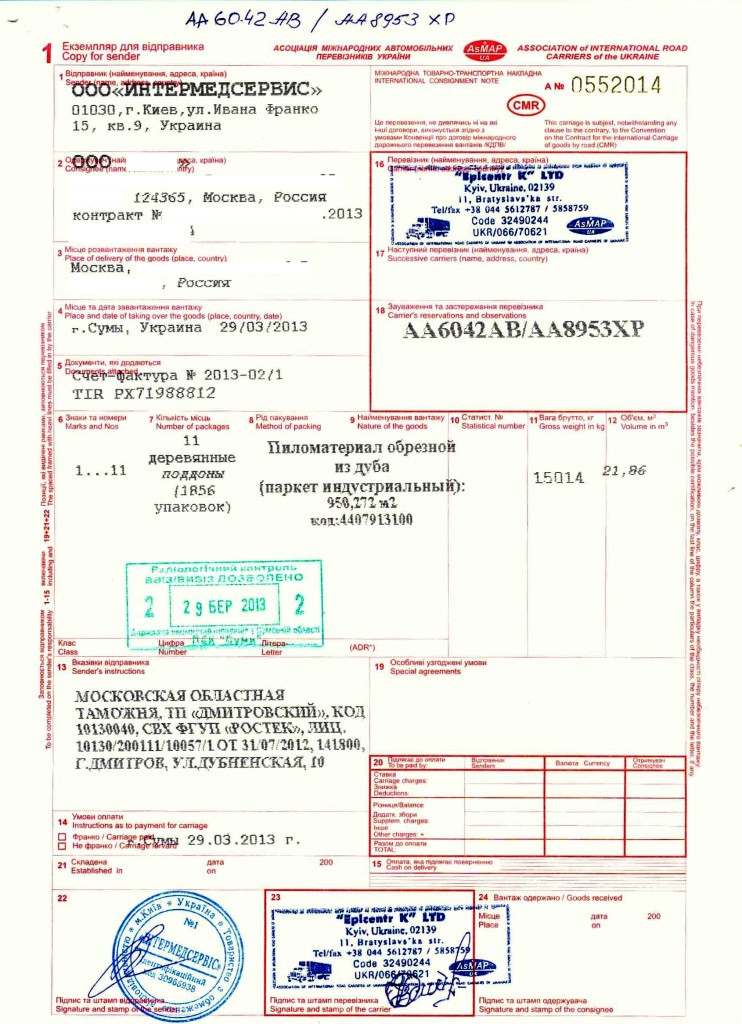 AA 6042 AB / AA 8953 XP
1 Екземпляр для відправника
Copy for sender
АСОЦІАЦІЯ МІЖНАРОДНИХ АВТОМОБІЛЬНИХ
ПЕРЕВІЗНИКІВ УКРАЇНИ
AsMAP
UA
ASSOCIATION of INTERNATIONAL ROAD
CARRIERS of the UKRAINE
1 Відправник (найменування, адреса, країна)
Sender (name, address, country)
ООО«ИНТЕРМЕДСЕРВИС»
01030,г.Киев,ул.Ивана Франко
15, кв.9, Украина
МІЖНАРОДНА ТОВАРНО-ТРАНСПОРТНА НАКЛАДНА
INTERNATIONAL CONSIGNMENT NOTE
A № 0552014
CMR
Це перевезення, не дивлячись ні на які
інші договори, виконується згідно з
умовами Конвенції про договір міжнародного
дорожнього перевезення вантажів /КДПВ/
This carriage is subject, notwithstanding any
clause to the contrary, to the Convention
on the Contract for the international Carriage
of goods by road (CMR)
2 країна)
Consignee
ООО
124365, Москва, Россия
контракт № .2013
16 Перевізник (найменування, адреса, країна)
"Epicentr K" LTD
Kyiv, Ukraine, 02139
11, Bratyslavs'ka str.
Tel/fax +38 044 5612787 / 5858759
Code 32490244
UKR/066/70621
AsMAP
UA
3 Місце розвантаження вантажу
Place of delivery of the goods (place, country)
Москва,
, Россия
17 Наступний перевізник (найменування, адреса, країна)
Successive carriers (name, address, country)
4 Місце та дата завантаження вантажу
Place and date of taking over the goods (place, country, date)
г.Сумы, Украина 29/03/2013
18 Зауваження та застереження перевізника
Carrier's reservations and observations
AA6042AB/AA8953XP
5 Документи, які додаються
Documents attached
Счет-фактура № 2013-02/1
TIR PX71988812
6 Знаки та номери
Marks and Nos
7 Кількість місць
Number of packages
8 Рід пакування
Method of packing
9 Найменування вантажу
Nature of the goods
10 Статист. №
Statistical number
11 Вага брутто, кг
Gross weight in kg
12 Об'єм, м³
Volume in m³
1...11
11
деревянные
поддоны
(1856
упаковок)
Пиломатериал обрезной
из дуба
(паркет индустриальный):
950,272 м2
код:4407913100
15014
21,86
Радіологічний контроль
ВВІЗ/ВИВІЗ ДОЗВОЛЕНО
2 29 БЕР 2013 2
Клас
Class
Цифра
Number
Літера
Letter
(ADR*)
13 Вказівки відправника
Sender's instructions
МОСКОВСКАЯ ОБЛАСТНАЯ
ТАМОЖНЯ, ТП «ДМИТРОВСКИЙ», КОД
10130040, СВХ ФГУП «РОСТЕК», ЛИЦ.
10130/200111/10057/1 ОТ 31/07/2012, 141800,
Г.ДМИТРОВ, УЛ.ДУБНЕНСКАЯ, 10
19 Особливі узгоджені умови
Special agreements
20 Підлягає до оплати
To be paid by
Відправник
Senders
Валюта Currency
Отримувач
Consignee
Ставка
Carriage charges:
Знижка
Deductions:
Різниця/Balance
Додатк. збори
Supplem. charges:
Інше
Other charges: +
Разом до оплати
TOTAL:
14 Умови оплати
Instructions as to payment for carriage
Франко / Carriage paid
Не франко / Carriage forward
г.Сумы 29.03.2013 г.
21 Складена дата 200
Established in on
15 Оплата, яка підлягає поверненню
Cash on delivery
22
Україна
м.Київ
Товариство з обмеженою
№1
"ІНТЕРМЕДСЕРВІС"
Ідентифікаційний
код 30966938
Підпис та штамп відправника
Signature and stamp of the sender
23
"Epicentr K" LTD
Kyiv, Ukraine, 02139
11, Bratyslavs'ka str.
Tel/fax +38 044 5612787 / 5858759
Code 32490244
UKR/066/70621
AsMAP
UA
Підпис та штамп перевізника
Signature and stamp of the carrier
24 Вантаж одержано / Goods received
Місце дата 200
Place on
Підпис та штамп одержувача
Signature and stamp of the consignee